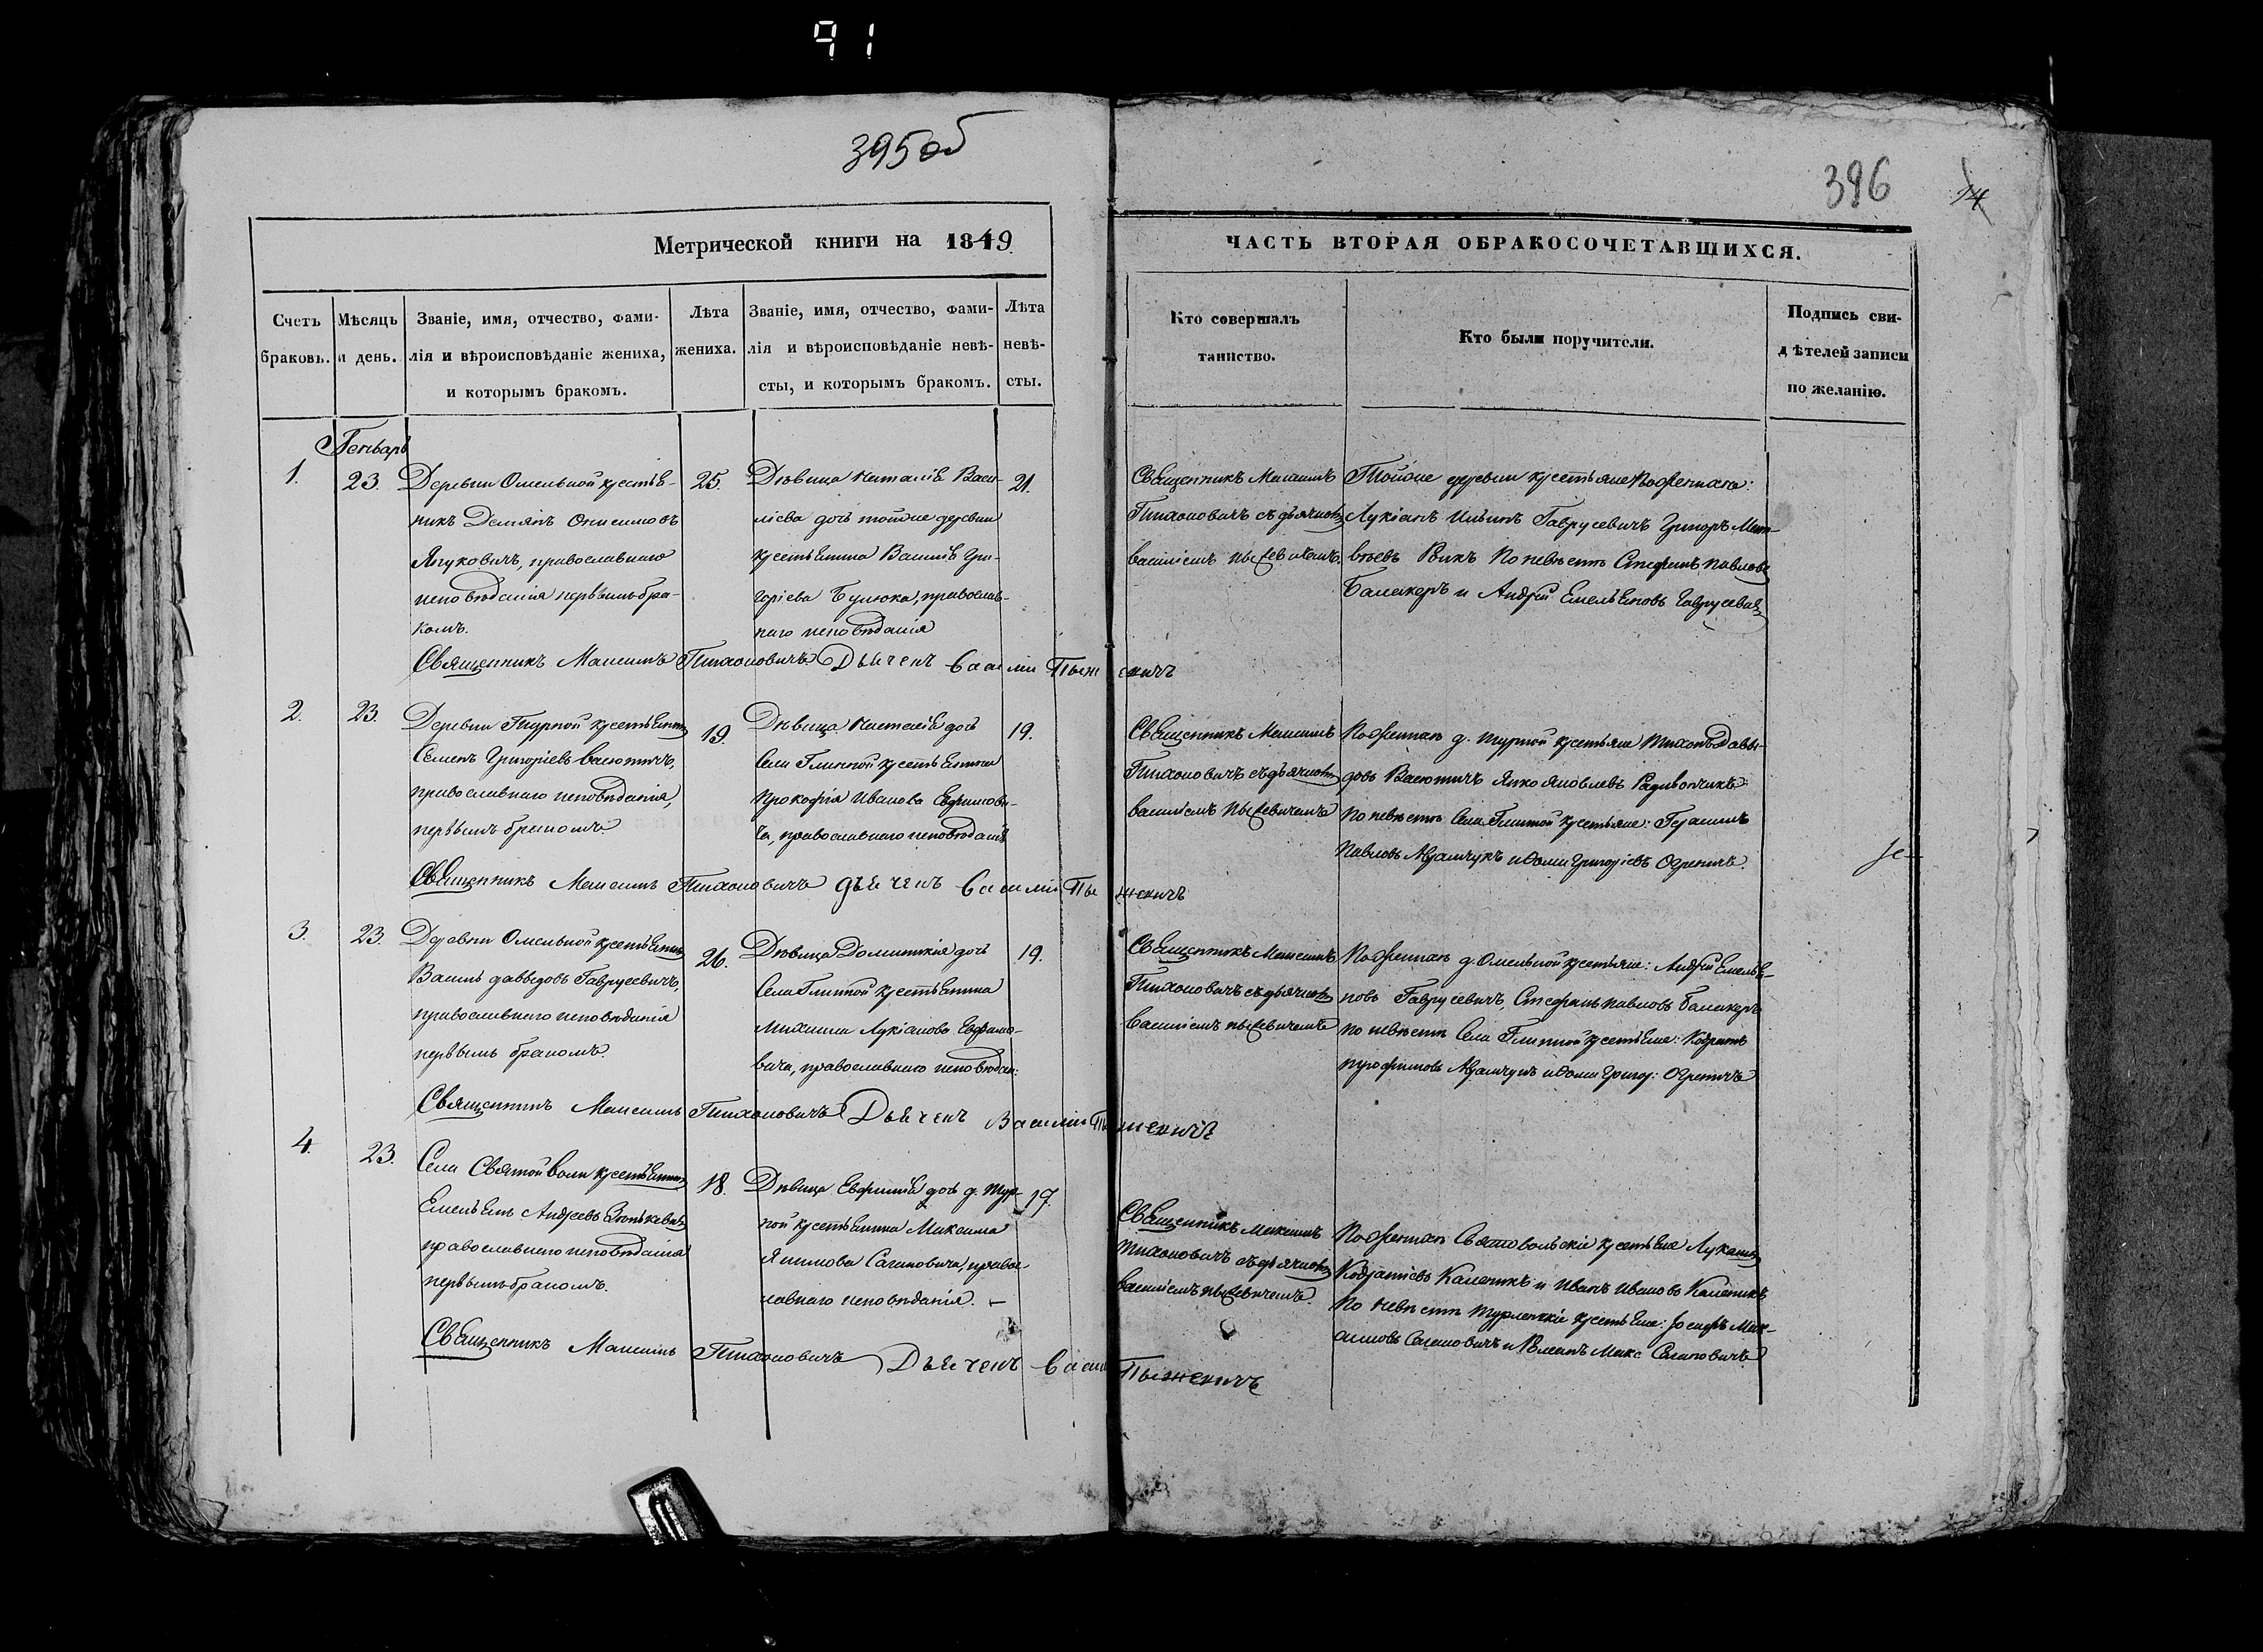 91
395об
396
14
Метрической книги на 1849.
ЧАСТЬ ВТОРАЯ ОБРАКОСОЧЕТАВШИХСЯ.
Счетъ браковъ.
Мѣсяцъ и день.
Званіе, имя, отчество, фами-
лія и вѣроисповѣданіе жениха,
и которымъ бракомъ.
Лѣта жениха.
Званіе, имя, отчество, фами-
лія и вѣроисповѣданіе невѣ-
сты, и которымъ бракомъ.
Лѣта невѣ-
сты.
Кто совершалъ
таинство.
Кто были поручители.
Подпись сви-
дѣтелей записи
по желанію.
Генварь
1.
23.
Деревни Омельной крестья-
никъ Демянъ Онисимовъ
православнаго
исповѣданія первымъ бра-
комъ.
25.
Дѣвица Наталія Васи-
ліева дочь тойже деревни
крестьянина Василія Гри-
горіева Булюка, православ-
наго исповѣданія
21.
Священникъ Максимъ
Тихоновичъ съ дьячкомъ
Василіемъ Пыжевичемъ.
Тойже деревни крестьяне по женихѣ:
Лукіанъ Ильинъ Гаврусевичъ Григоръ Мат-
вѣевъ по невѣстѣ Стефанъ Павловъ
Балакеръ и Андрей Емельяновъ Гаврусевичъ
Священникъ Максимъ Тихоновичъ Дьячекъ Василій Пыжевичъ
2.
23.
Деревни Турной крестьянинъ
Семенъ Григоріевъ Васютичъ,
православнаго исповѣданія,
первымъ бракомъ
19.
Дѣвица Настасія дочь
Села Глинной крестьянина
Прокофія Иванова Ефимови-
ча, православнаго исповѣданія
19.
Священникъ Максимъ
Тихоновичъ съ дьячкомъ
Василіемъ Пыжевичемъ
По женихѣ д. Турной крестьяне Тихонъ Давы-
довъ Васютичъ Янко Яковлевъ Радивончикъ
по невѣстѣ Села Глинной крестьяне: Герасимъ
Павловъ Адамчукъ и Фома Григоріевъ Огреничъ
Священникъ Максимъ Тихоновичъ дьячекъ Василій Пыжевичъ
3.
23.
Деревни Омельной крестьянинъ
Василь Давыдовъ Гаврусевичъ,
православнаго исповѣданія
первымъ бракомъ.
26.
Дѣвица Домникія дочь
Села Глинной крестьянина
Михаила Лукіанова Ефимо-
вича, православнаго исповѣдан:
19.
Священникъ Максимъ
Тихоновичъ съ дьячкомъ
Василіемъ Пыжевичемъ
По женихѣ д. Омельной крестьяне: Андрей Емелья-
новъ Гаврусевичъ, Стефанъ Павловъ Балакеръ
по невѣстѣ Села Глинной крестьяне: Кодратъ
Трофимовъ Адамчукъ и Фома Григор: Огреничъ
Священникъ Максимъ Тихоновичъ Дьячекъ Василій Пыжевичъ
4.
23.
Села Святой Воли крестьянинъ
Емельянъ Андреевъ
православнаго исповѣданія
первымъ бракомъ.
18.
Дѣвица Евфимія дочь д. Тур-
ной крестьянина Максима
Якимова Сагановича, право-
славнаго исповѣданія. —
17.
Священникъ Максимъ
Тихоновичъ съ дьячкомъ
Василіемъ Пыжевичемъ.
По женихѣ Святовольскіе крестьяне Лукашъ
Кодратіевъ Каленикъ и Иванъ Ивановъ Каленикъ
по невѣстѣ Турленскіе крестьяне: Іосифъ Мак-
симовъ Сагановичъ и Романъ Макс Сагановичъ
Священникъ Максимъ Тихоновичъ Дьячекъ Василій Пыжевичъ